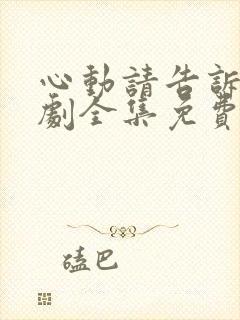 心動請告訴
劇全集免費
磕巴